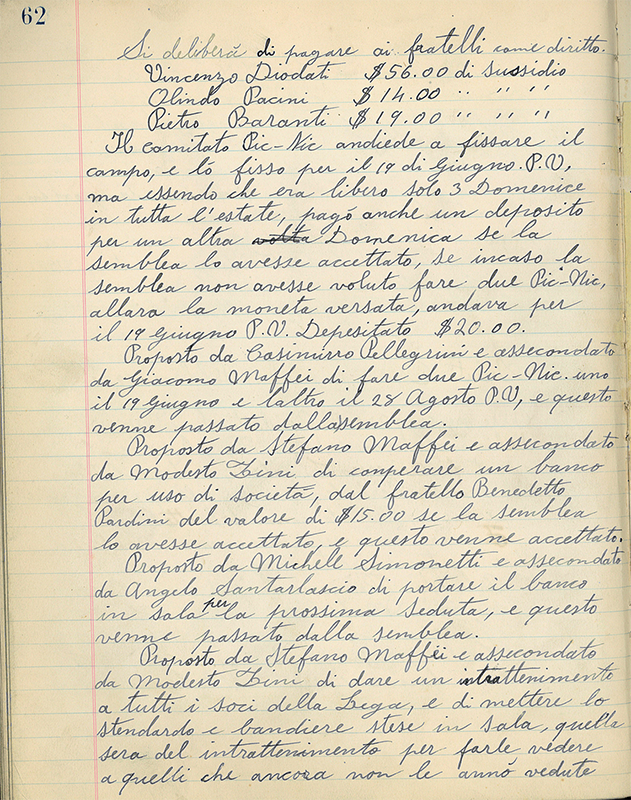 62
Si deliberà di pagare ai fratelli come diritto.
Vincenzo Diodati $56.00 di sussidio
Olindo Pacini $14.00 " " "
Pietro Baranti $19.00 " " "
Il comitato Pic-Nic andiede a fissare il
campo, e lò fisso per il 19 di Giugno. P.V,
ma essendo che era libero solo 3 Domenice
in tutta l'estate, pagò anche un deposito
per un altra volta Domenica se la
semblea lo avesse accettato, se incaso la
semblea non avesse voluto fare due Pic-Nic,
allara la moneta versata, andava per
il 19 Giugno P.V. Depesitato $20.00.
Proposto da Casimirro Pellegrini e assecondato
da Giacomo Maffei di fare due Pic-Nic. uno
il 19 Giugno e laltro il 28 Agosto P.V, e questo
venne passato dalla semblea.
Proposto da Stefano Maffei e assecondato
da Modesto Lini di conperare un banco
per uso di società, dal fratello Benedetto
Pardini del valore di $15.00 se la semblea
lo avesse accettato, e questo venne accettato.
Proposto da Michell Simonetti e assecondato
da Angelo Santarlascio di portare il banco
in sala per la prossima seduta, e questo
venne passato dalla semblea.
Proposto da Stefano Maffei e assecondato
da Modesto Lini di dare un intrattenimento
a tutti i soci della Lega, e di mettere lo
stendardo e bandiere stese in sala, quella
sera del intrattenimento per farle vedere
a quelli che ancora non le annò vedute